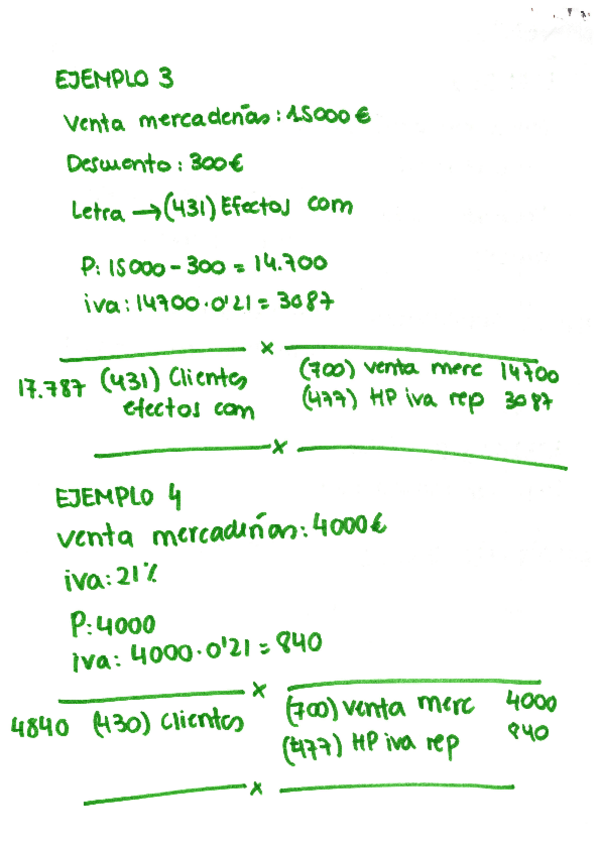 EJEMPLO 3
Venta mercaderías: 15000€
Descuento: 300€
Letra → (431) Efectos com
P: 15000 - 300 = 14.700
iva: 14700 · 0'21 = 3087
x
17.787 (431) Clientes (700) venta merc 14700
efectos com (477) HP iva rep 3087
x
EJEMPLO 4
venta mercaderías: 4000€
iva: 21%
P: 4000
iva: 4000 · 0'21 = 840
x
4840 (430) Clientes (700) venta merc 4000
(477) HP iva rep 840
x